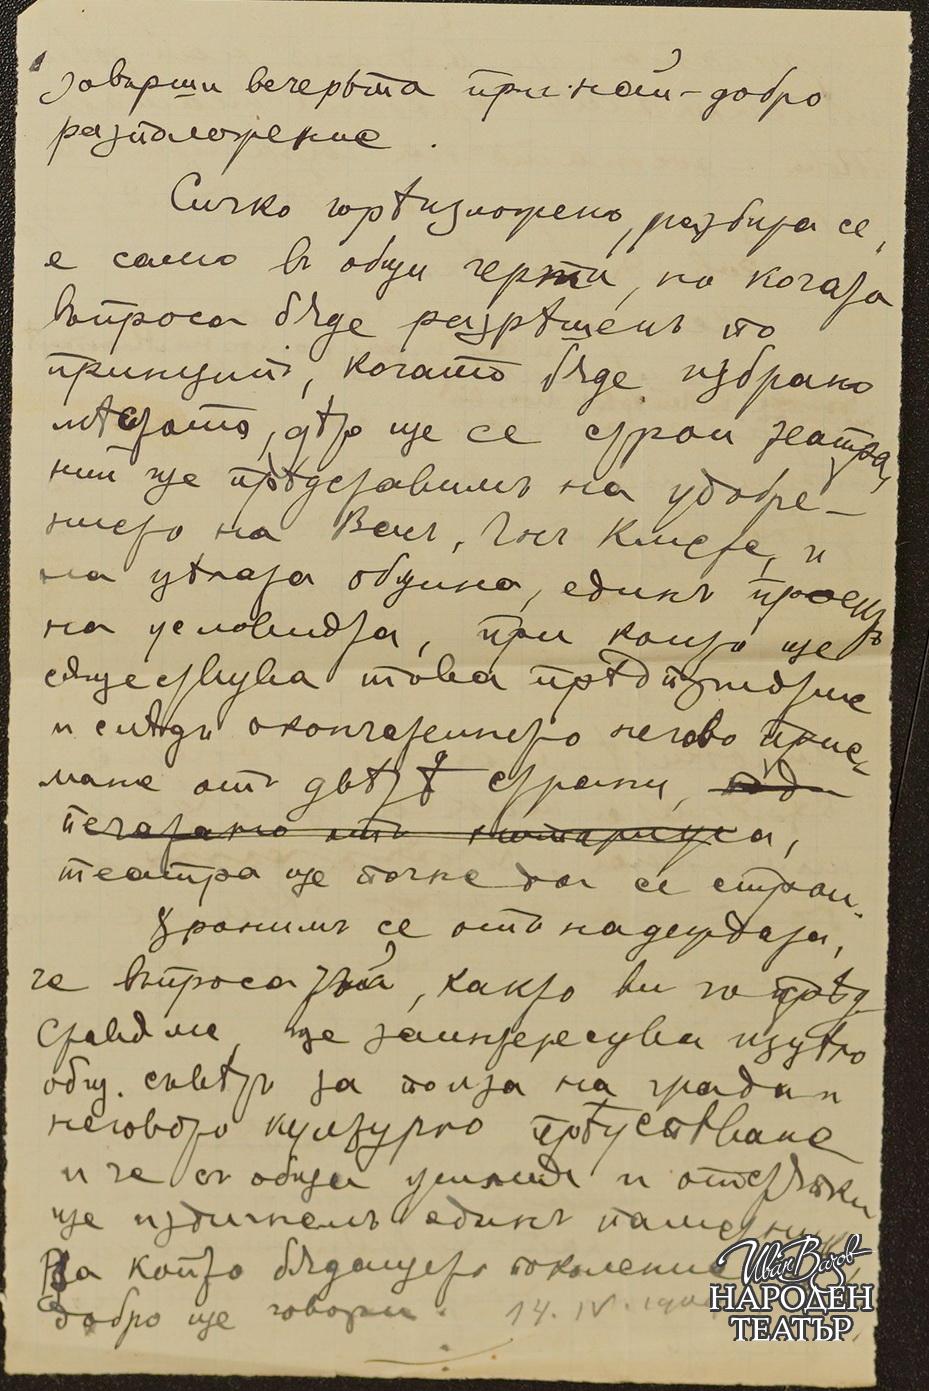 завърши вечерьта при най-добро
разположение.
Сичко горѣизложено, разбира се,
е само въ общи черти, но когато
въпроса бѫде разрѣшенъ по
принципъ, когато бѫде избрано
мѣстото, дѣто ще се строи театра,
ний ще прѣдставимъ на удобре-
нието на Васъ, Г-нъ Кмете, и
на цѣлата община, единъ проектъ
на условията, при които ще
сѫществува това прѣдприятие
и слѣдъ окончателното негово прие-
мане отъ двѣтѣ страни,
печатано отъ нотариуса,
театра ще почне да се строи.
Хранимъ се отъ надеждата,
че въпроса тъй, както ви го прѣд-
ставяме, ще заинтересува изцѣло
общ. съвѣтъ за полза на града и
неговото културно прѣуспѣване
и че съ общи усилия и отстѫпки
ще издигнемъ единъ паметникъ,
За който бѫдащето поколение
добро ще говори. 14. IV.
Иван Вазов
НАРОДЕН
ТЕАТЪР